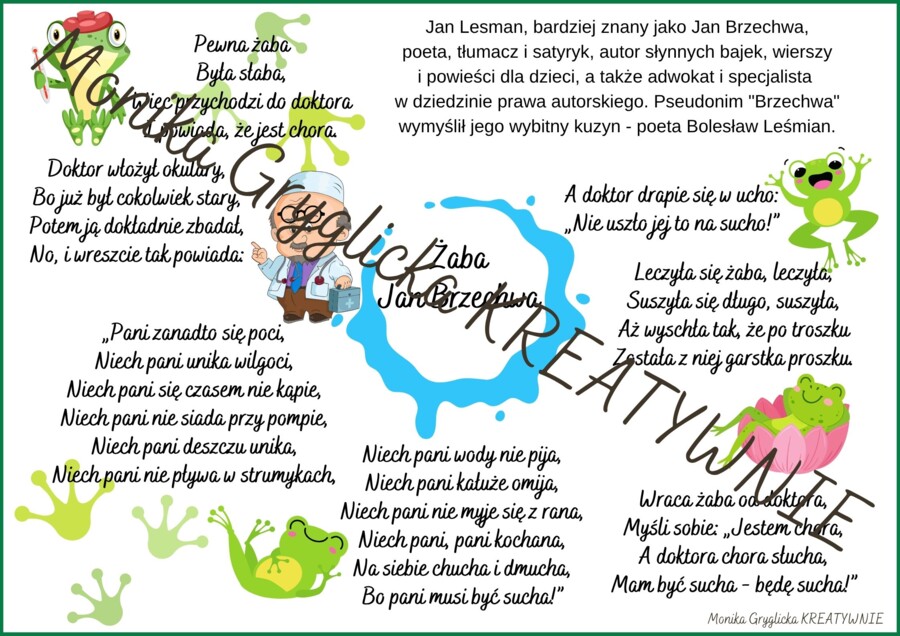 Pewna żaba
Była słaba,
Więc przychodzi do doktora
I powiada, że jest chora.
Doktor włożył okulary,
Bo już był cokolwiek stary,
Potem ją dokładnie zbadał,
No, i wreszcie tak powiada:
„Pani zanadto się poci,
Niech pani unika wilgoci,
Niech pani się czasem nie kąpie,
Niech pani nie siada przy pompie,
Niech pani deszczu unika,
Niech pani nie pływa w strumykach,
Niech pani wody nie pija,
Niech pani kałuże omija,
Niech pani nie myje się z rana,
Niech pani, pani kochana,
Na siebie chucha i dmucha,
Bo pani musi być sucha!”
Wraca żaba od doktora,
Myśli sobie: „Jestem chora,
A doktora chora słucha,
Mam być sucha – będę sucha!”
Leczyła się żaba, leczyła,
Suszyła się długo, suszyła,
Aż wyschła tak, że po troszku
Została z niej garstka proszku.
A doktor drapie się w ucho:
„Nie uszło jej to na sucho!”
Żaba
Jan Brzechwa
Jan Lesman, bardziej znany jako Jan Brzechwa,
poeta, tłumacz i satyryk, autor słynnych bajek, wierszy
i powieści dla dzieci, a także adwokat i specjalista
w dziedzinie prawa autorskiego. Pseudonim "Brzechwa"
wymyślił jego wybitny kuzyn - poeta Bolesław Leśmian.
Monika Gryglicka KREATYWNIE
Monika Gryglicka KREATYWNIE